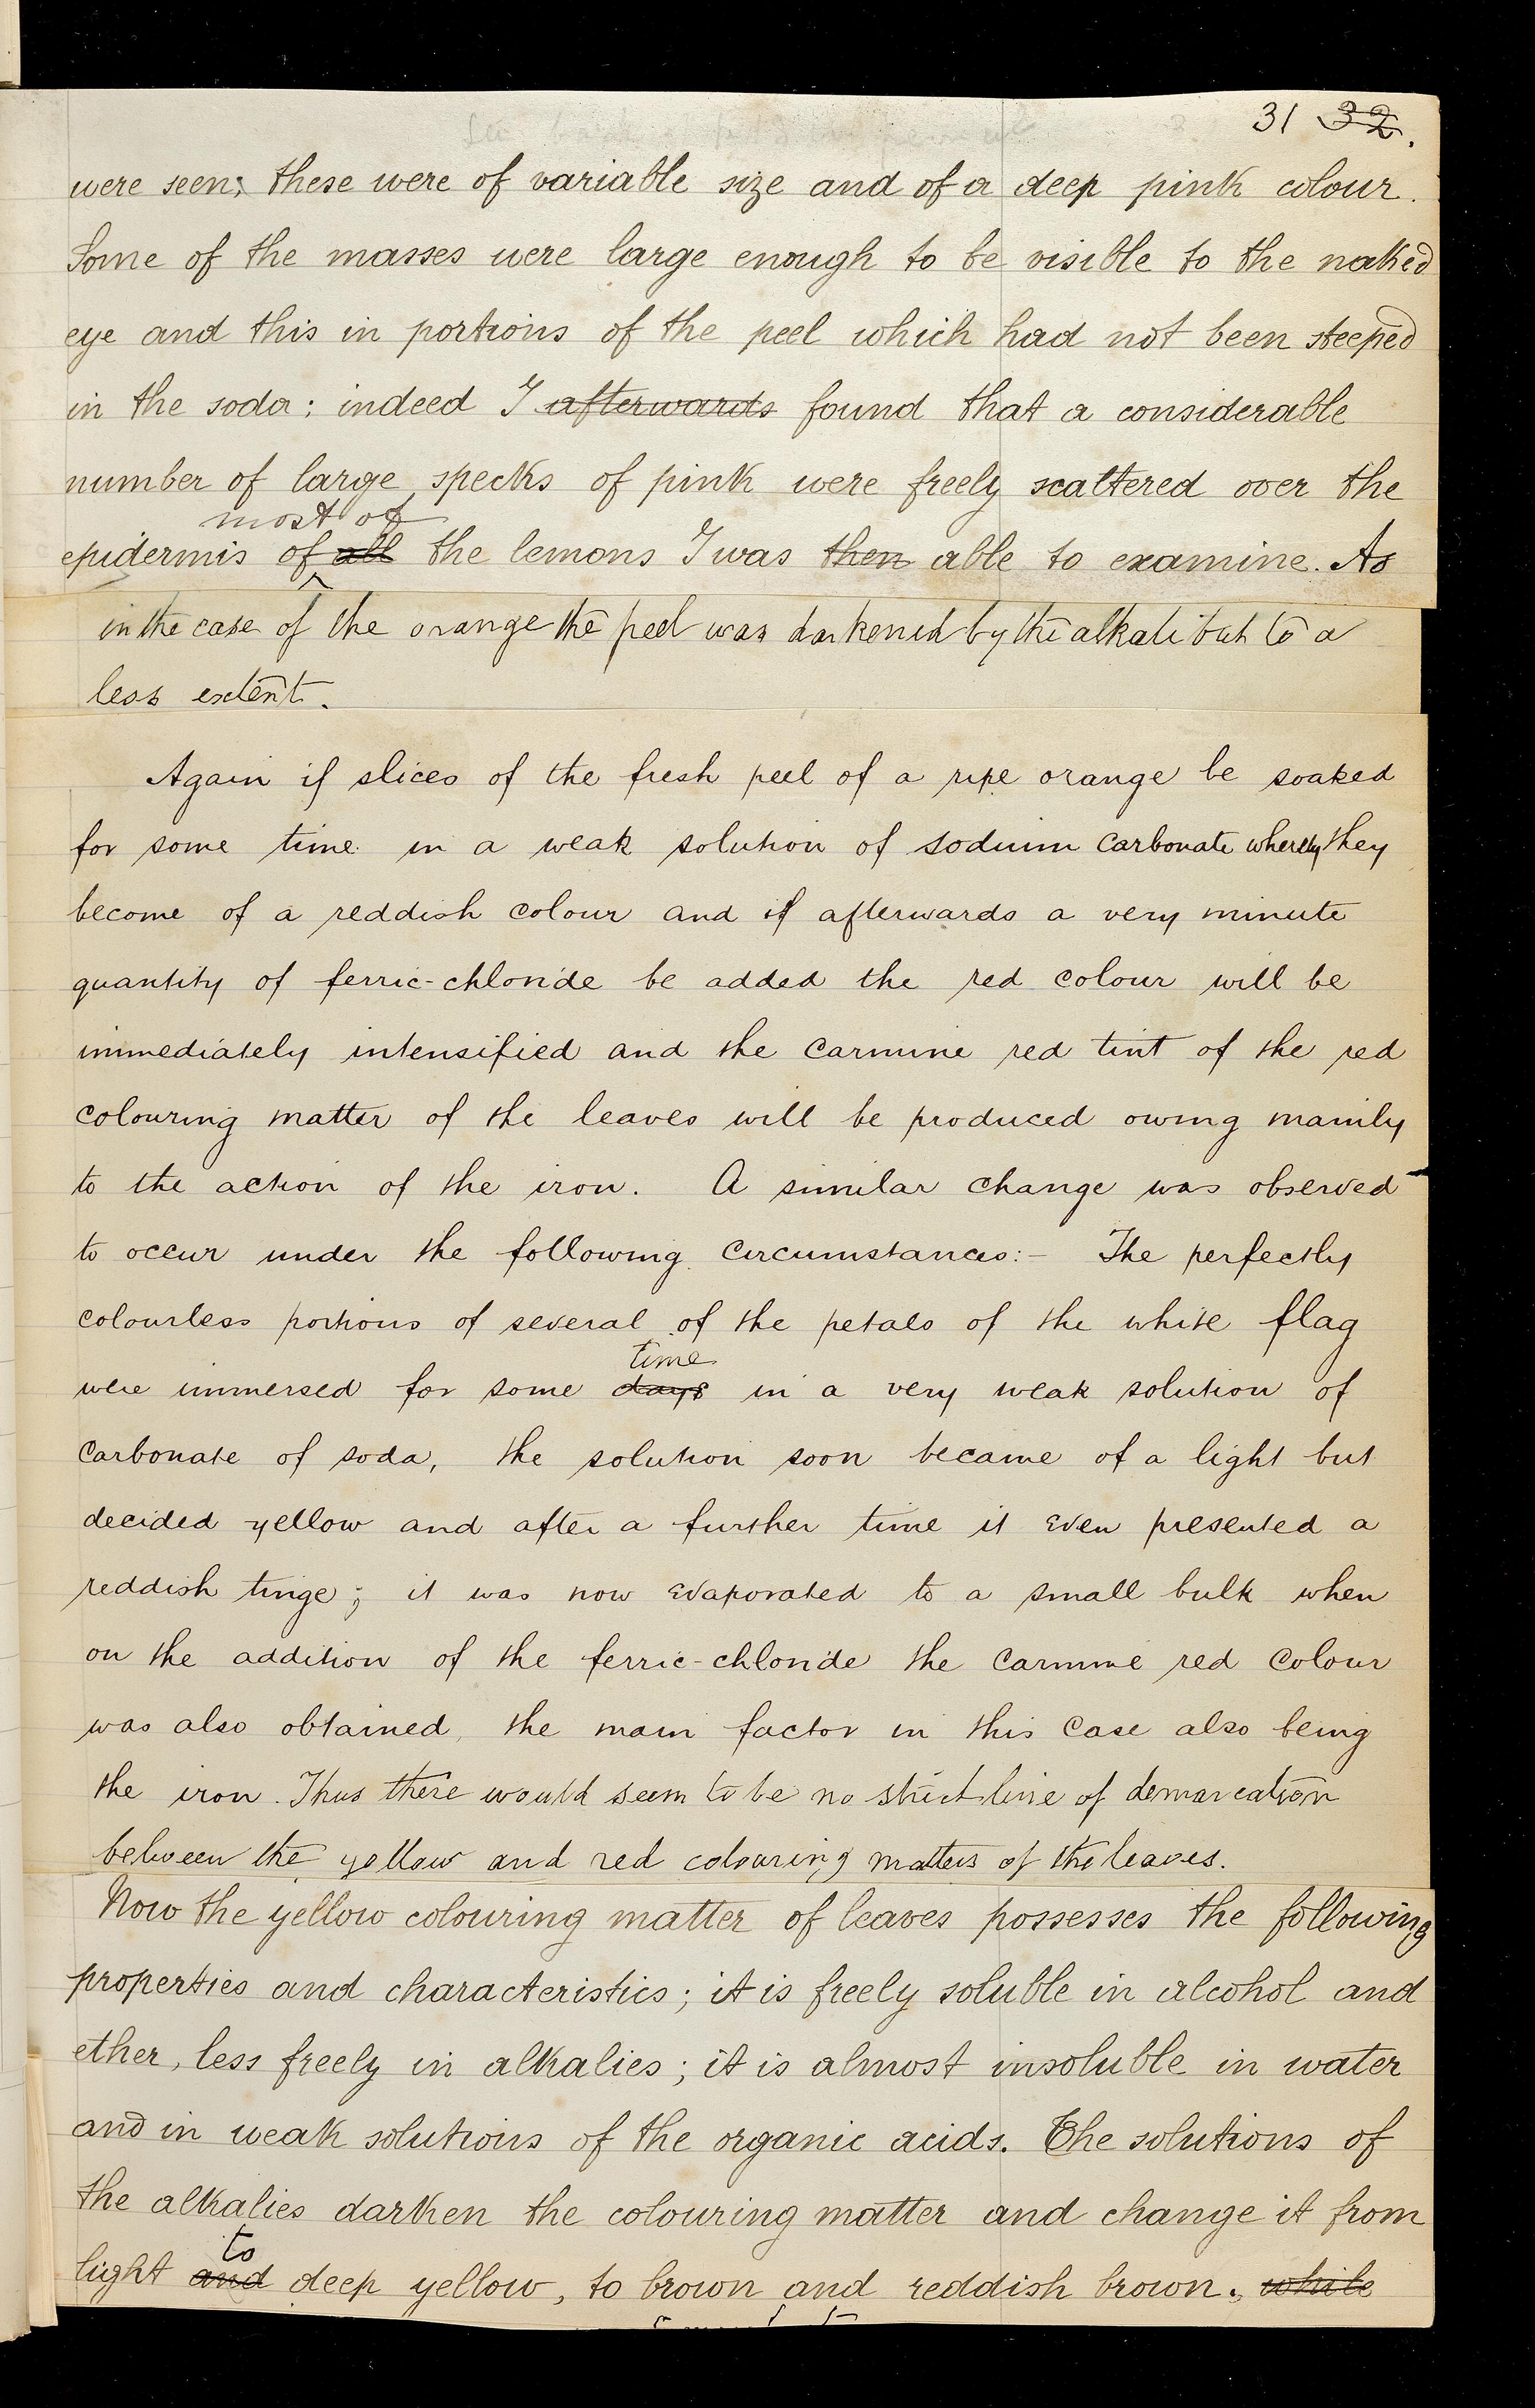 31 32.
were seen; these were of variable size and of a deep pink colour.
Some of the masses were large enough to be visible to the naked
eye and this in portions of the peel which had not been steeped
in the soda: indeed I afterwards found that a considerable
number of large specks of pink were freely scattered over the
most of
epidermis of all the lemons I was then able to examine. As
in the case of the orange the peel was darkened by the alkali but to a
less extent.
Again if slices of the fresh peel of a ripe orange be soaked
for some time in a weak solution of sodium carbonate whereby they
become of a reddish colour and if afterwards a very minute
quantity of ferric-chloride be added the red colour will be
immediately intensified and the carmine red tint of the red
colouring matter of the leaves will be produced owing mainly
to the action of the iron. A similar change was observed
to occur under the following circumstances:- The perfectly
colourless portions of several of the petals of the white flag
time
were immersed for some days in a very weak solution of
carbonate of soda, the solution soon became of a light but
decided yellow and after a further time it even presented a
reddish tinge; it was now evaporated to a small bulk when
on the addition of the ferric-chloride the carmine red colour
was also obtained, the main factor in this case also being
the iron. Thus there would seem to be no strict line of demarcation
between the yellow and red colouring matters of the leaves.
Now the yellow colouring matter of leaves possesses the following
properties and characteristics; it is freely soluble in alcohol and
ether, less freely in alkalies; it is almost insoluble in water
and in weak solutions of the organic acids. The solutions of
the alkalies darken the colouring matter and change it from
to
light and deep yellow, to brown and reddish brown. while